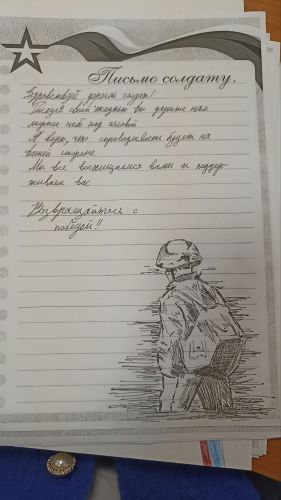 Письмо солдату.
Здравствуй дорогой солдат!
Рискуя своей жизнью вы дарите нам
мирное небо над головой
Я верю, что справедливость будет на
вашей стороне
Мы все восхищаемся вами и поддер
живаем вас
Возвращайтесь с
победой!!